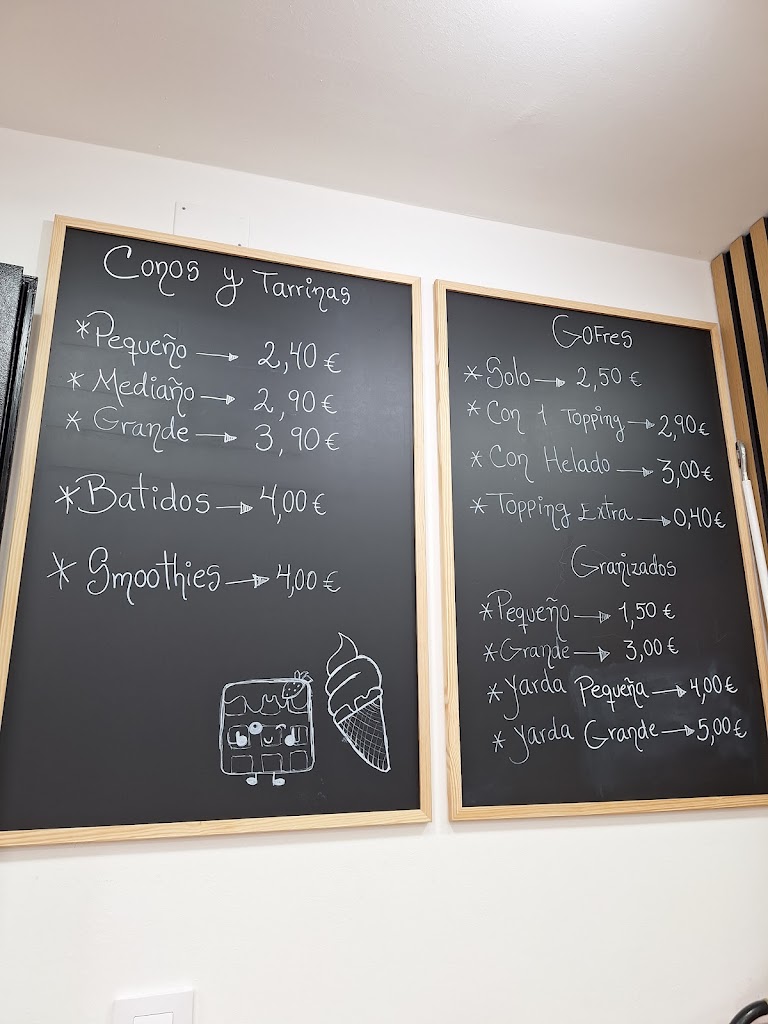 Conos y Tarrinas
*Pequeño → 2,40 €
* Mediaño → 2,90 €
* Grande → 3,90 €
*Batidos → 4,00 €
* Smoothies → 4,00 €
Gofres
*Solo → 2,50 €
* Con 1 Topping → 2,90 €
* Con Helado → 3,00 €
* Topping Extra → 0,40 €
Grañizados
*Pequeño → 1,50 €
*Grande → 3,00 €
* Yarda Pequeña → 4,00 €
* Yarda Grande → 5,00 €